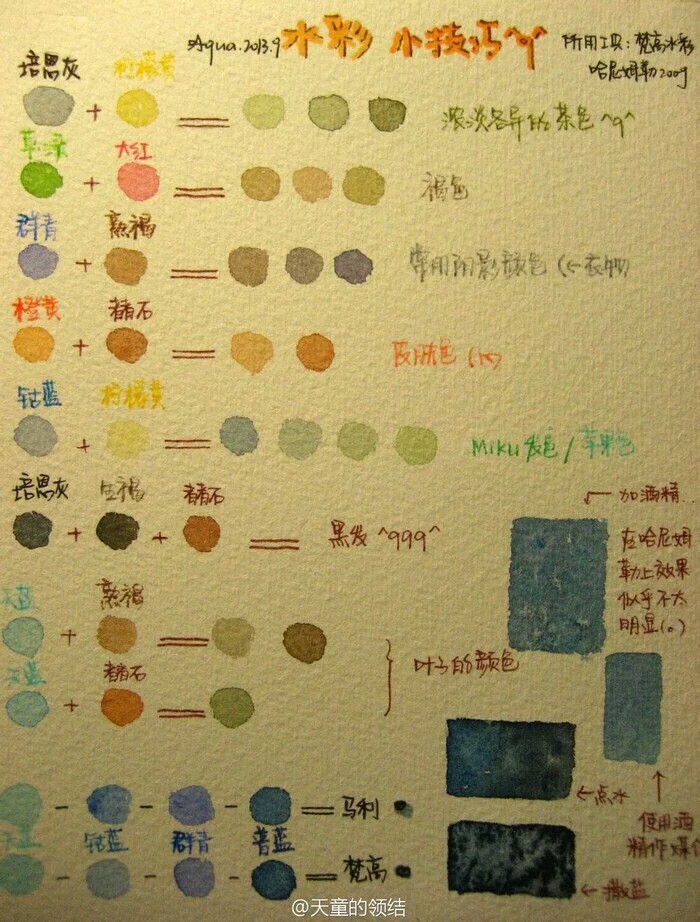 Aqua.2013.9 水彩 小技巧^q^ 所用工具：梵高水彩
哈尼姆勒200g
培恩灰 柠檬黄
+ = 浓淡各异的茶色^q^
草绿 大红
+ = 褐色
群青 熟褐
+ = 常用阴影颜色(←衣物)
橙黄 赭石
+ = 皮肤色
钴蓝 柠檬黄
+ = Miku发色/苹果色
培恩灰 生褐 赭石
+ + = 黑发^qqq^
←加酒精
在哈尼姆
勒上效果
似乎不太
明显(。)
天蓝 熟褐
+ =
天蓝 赭石
+ =
} 叶子的颜色
- - - = 马利
天蓝 钴蓝 群青 普蓝
- - - = 梵高
←点水
↑
使用酒
精作媒介
←撒盐
@天童的领结